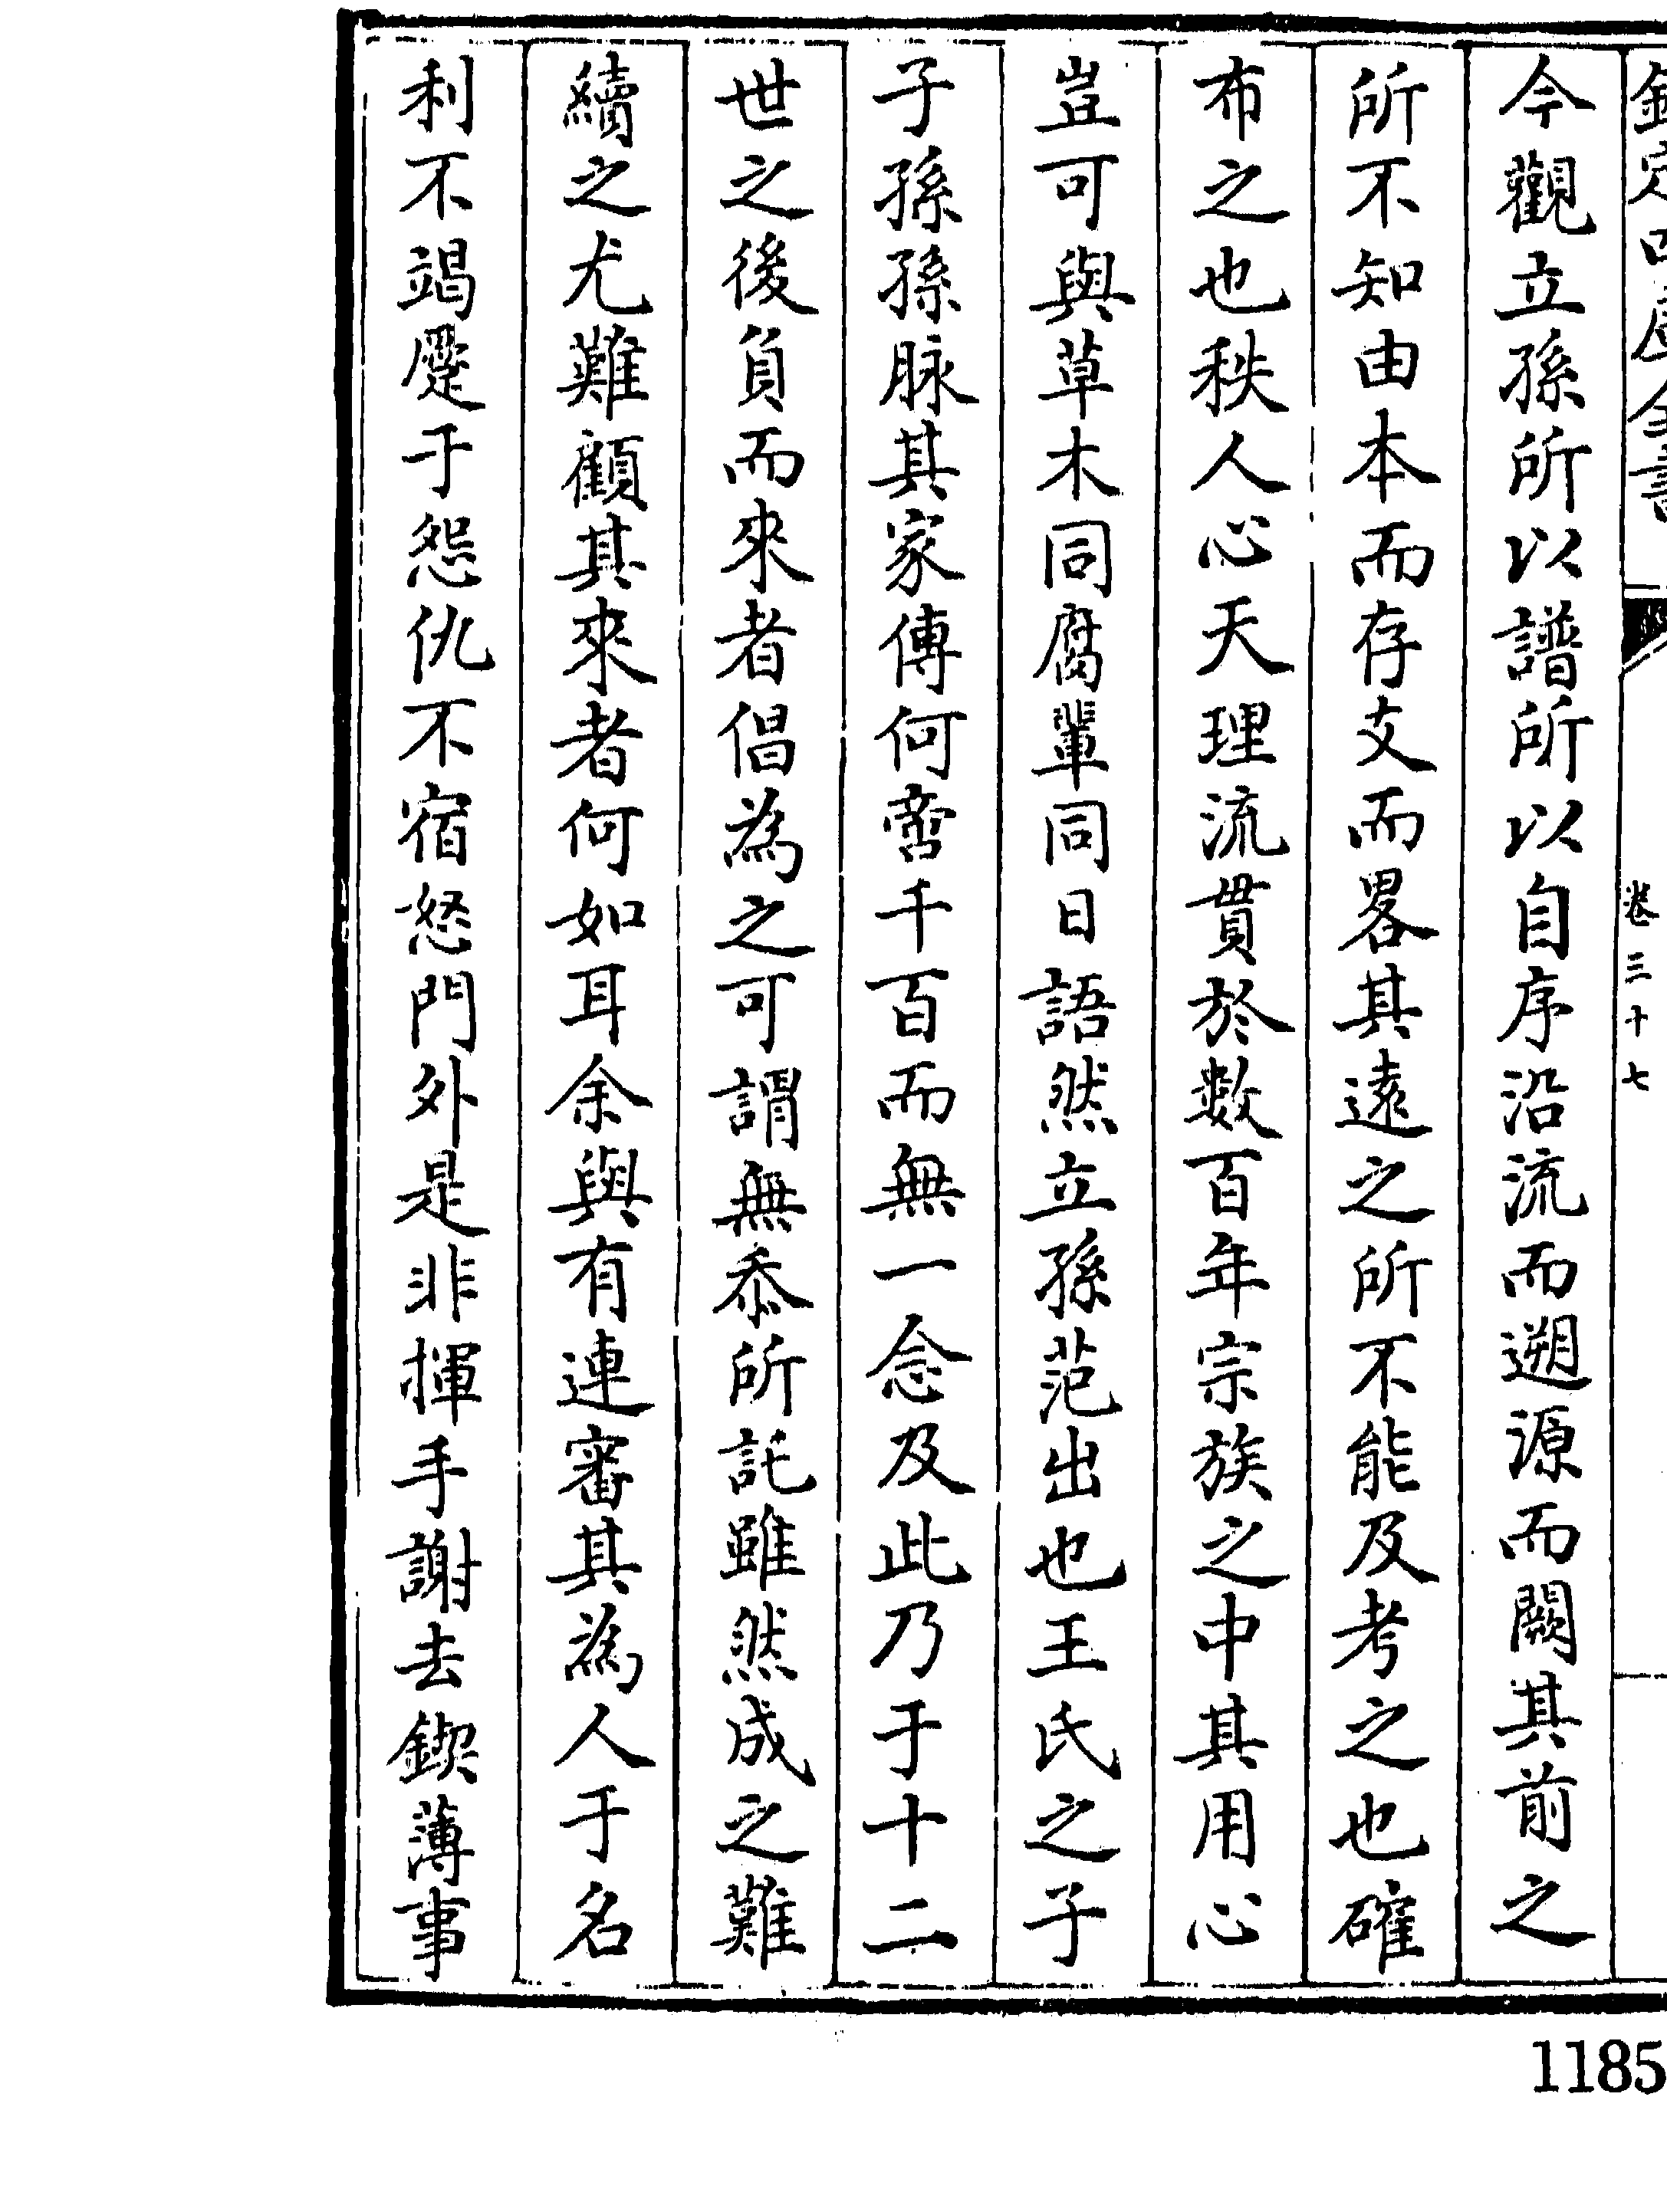 欽定四庫全書
卷三十七
今觀立孫所以譜所以自序沿流而遡源而闕其前之
所不知由本而存支而畧其遠之所不能及考之也確
布之也秩人心天理流貫於數百年宗族之中其用心
豈可與草木同腐輩同日語然立孫范出也王氏之子
子孫孫脉其家傳何啻千百而無一念及此乃于十二
世之後負而來者倡為之可謂無忝所託雖然成之難
續之尤難顧其來者何如耳余與有連審其為人于名
利不竭蹷于怨仇不宿怒門外是非揮手謝去鍥薄事
1185